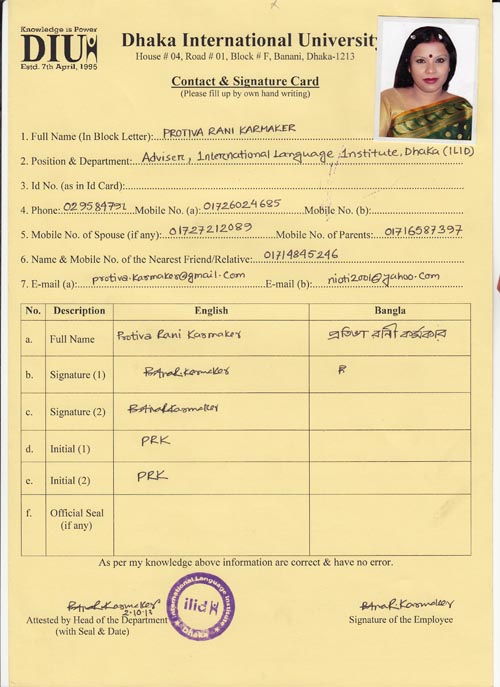 Knowledge is Power
DIU
Estd. 7th April, 1995
Dhaka International University
House # 04, Road # 01, Block # F, Banani, Dhaka-1213
Contact & Signature Card
(Please fill up by own hand writing)
1. Full Name (In Block Letter): PROTIVA RANI KARMAKER
2. Position & Department: Adviser, International Language Institute, Dhaka (ILID)
3. Id No. (as in Id Card):
4. Phone: 029584791 Mobile No. (a): 01726024685 Mobile No. (b):
5. Mobile No. of Spouse (if any): 01727212089 Mobile No. of Parents: 01716587397
6. Name & Mobile No. of the Nearest Friend/Relative: 01714845246
7. E-mail (a): protiva.karmaker@gmail.com E-mail (b): nioti2001@yahoo.com
No. Description English Bangla
a. Full Name Protiva Rani Karmaker প্রতিভা রানী কর্মকার
b. Signature (1)
c. Signature (2)
d. Initial (1) PRK
e. Initial (2) PRK
f. Official Seal
(if any)
As per my knowledge above information are correct & have no error.
2-10-13
International Language Institute
ilid
Dhaka
Attested by Head of the Department
(with Seal & Date)
Signature of the Employee